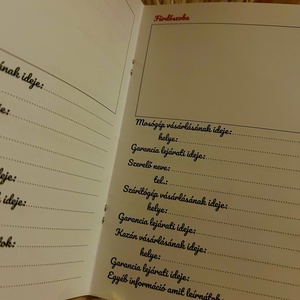 ának ideje:
e:
e:
eje:
ideje:
ok:
Fürdőszoba
Mosógép vásárlásának ideje:
helye:
Garancia lejárati ideje:
Szerelő neve:
tel.:
Szárítógép vásárlásának ideje:
helye:
Garancia lejárati ideje:
Kazán vásárlásának ideje:
helye:
Garancia lejárati ideje:
Egyéb információ amit leírnátok: